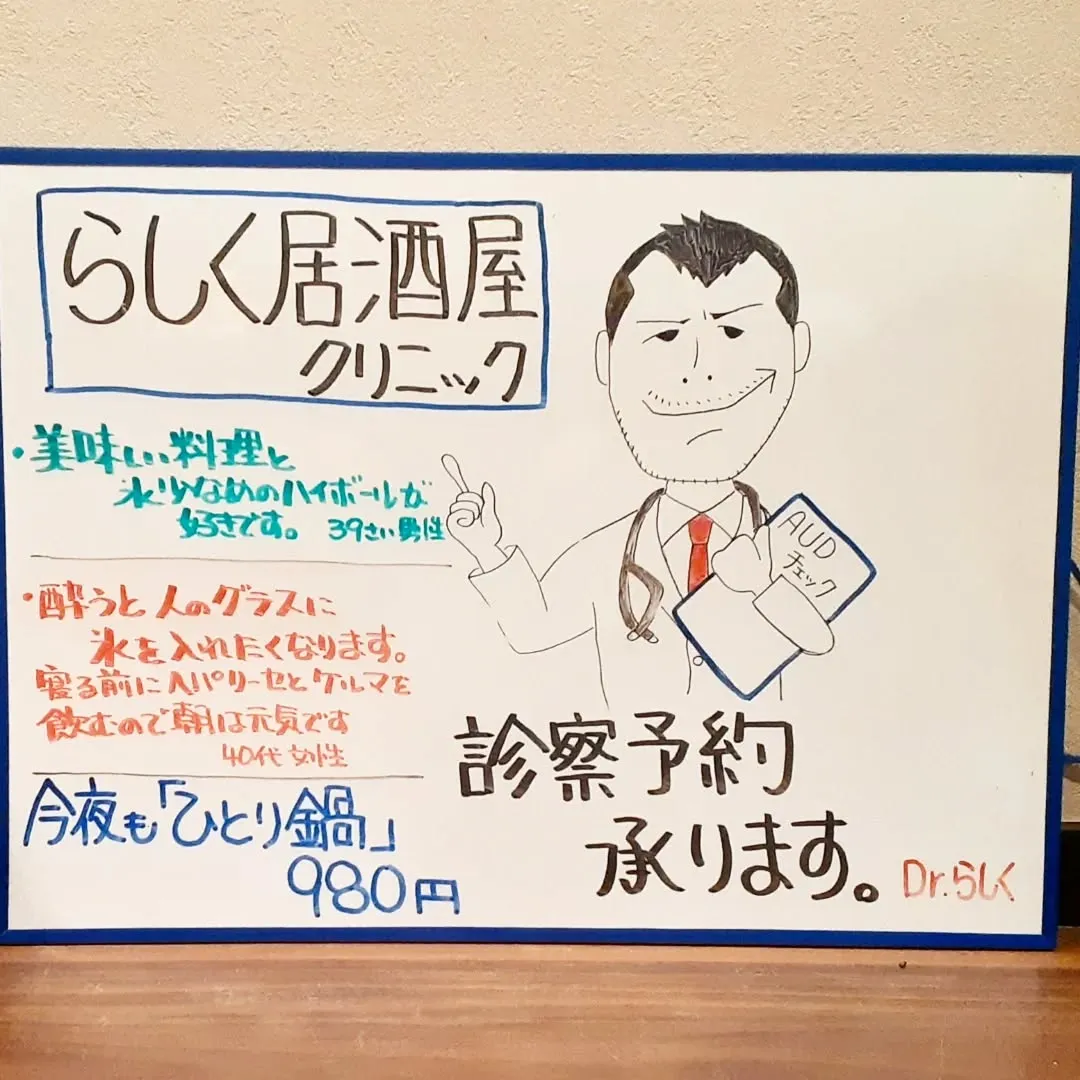 らしく居酒屋
クリニック
・美味しい料理と
氷少なめのハイボールが
好きです。 39さい男性
・酔うと人のグラスに
氷を入れたくなります。
寝る前にヘパリーゼとケルマを
飲むので朝は元気です
40代女性
今夜も「ひとり鍋」
980円
AUD
チェック
診察予約
承ります。
Dr.らしく